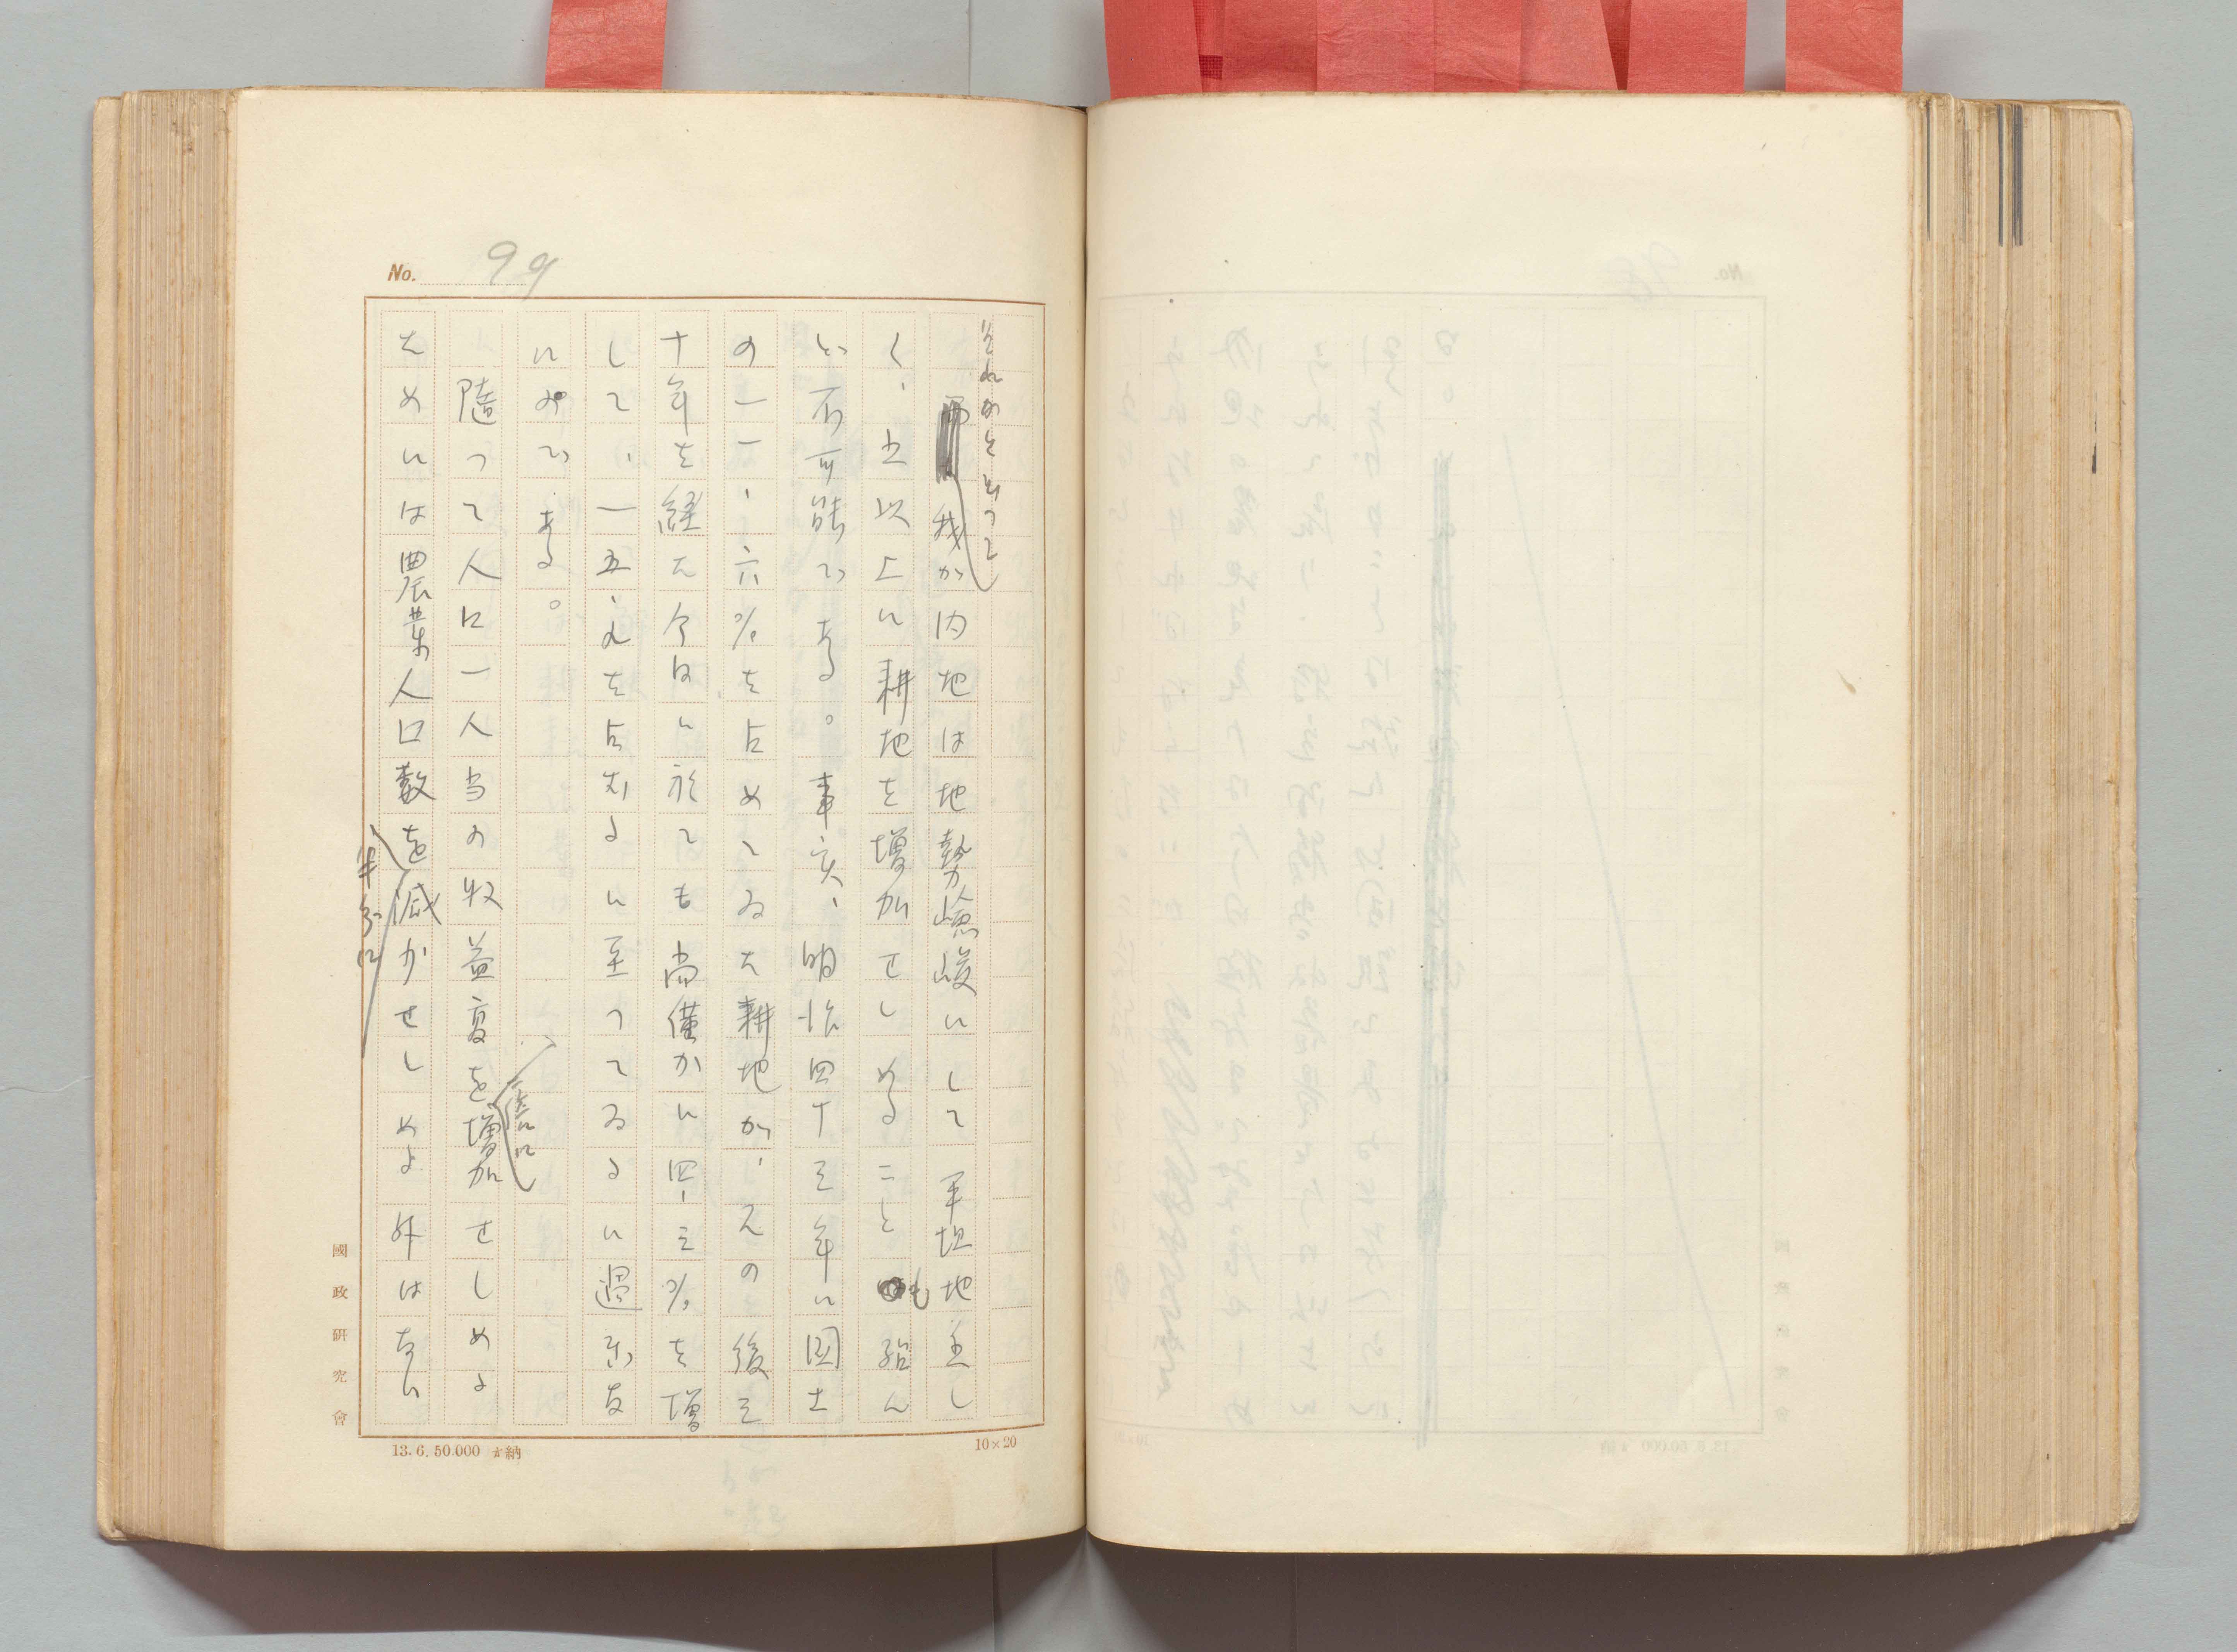 No. 99
それかといつて
我が内地は地勢嶮峻にして平坦地乏し
く、之以上に耕地を増加せしめることも殆ん
ど不可能である。事実、明治四十三年に国土
の一一、六%を占めてゐた耕地が、その後三
十年を経た今日に於ても尚僅かに四、三%を増
して、一五、九を占むるに至つてゐるに過ぎな
いのである。
随つて人口一人当の収益高を増加せしめよ
更に
ためには農業人口数を減少せしめる外はない
半分に
國政研究會
13.6.50.000 納
10×20